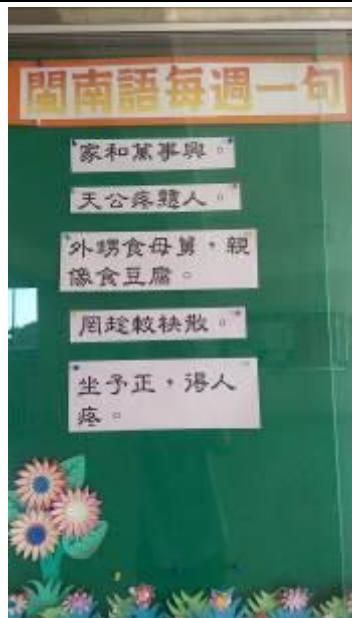 閩南語每週一句
家和萬事興。
天公疼戇人。
外甥食母舅，親
像食豆腐。
罔趁較袂散。
坐予正，得人
疼。